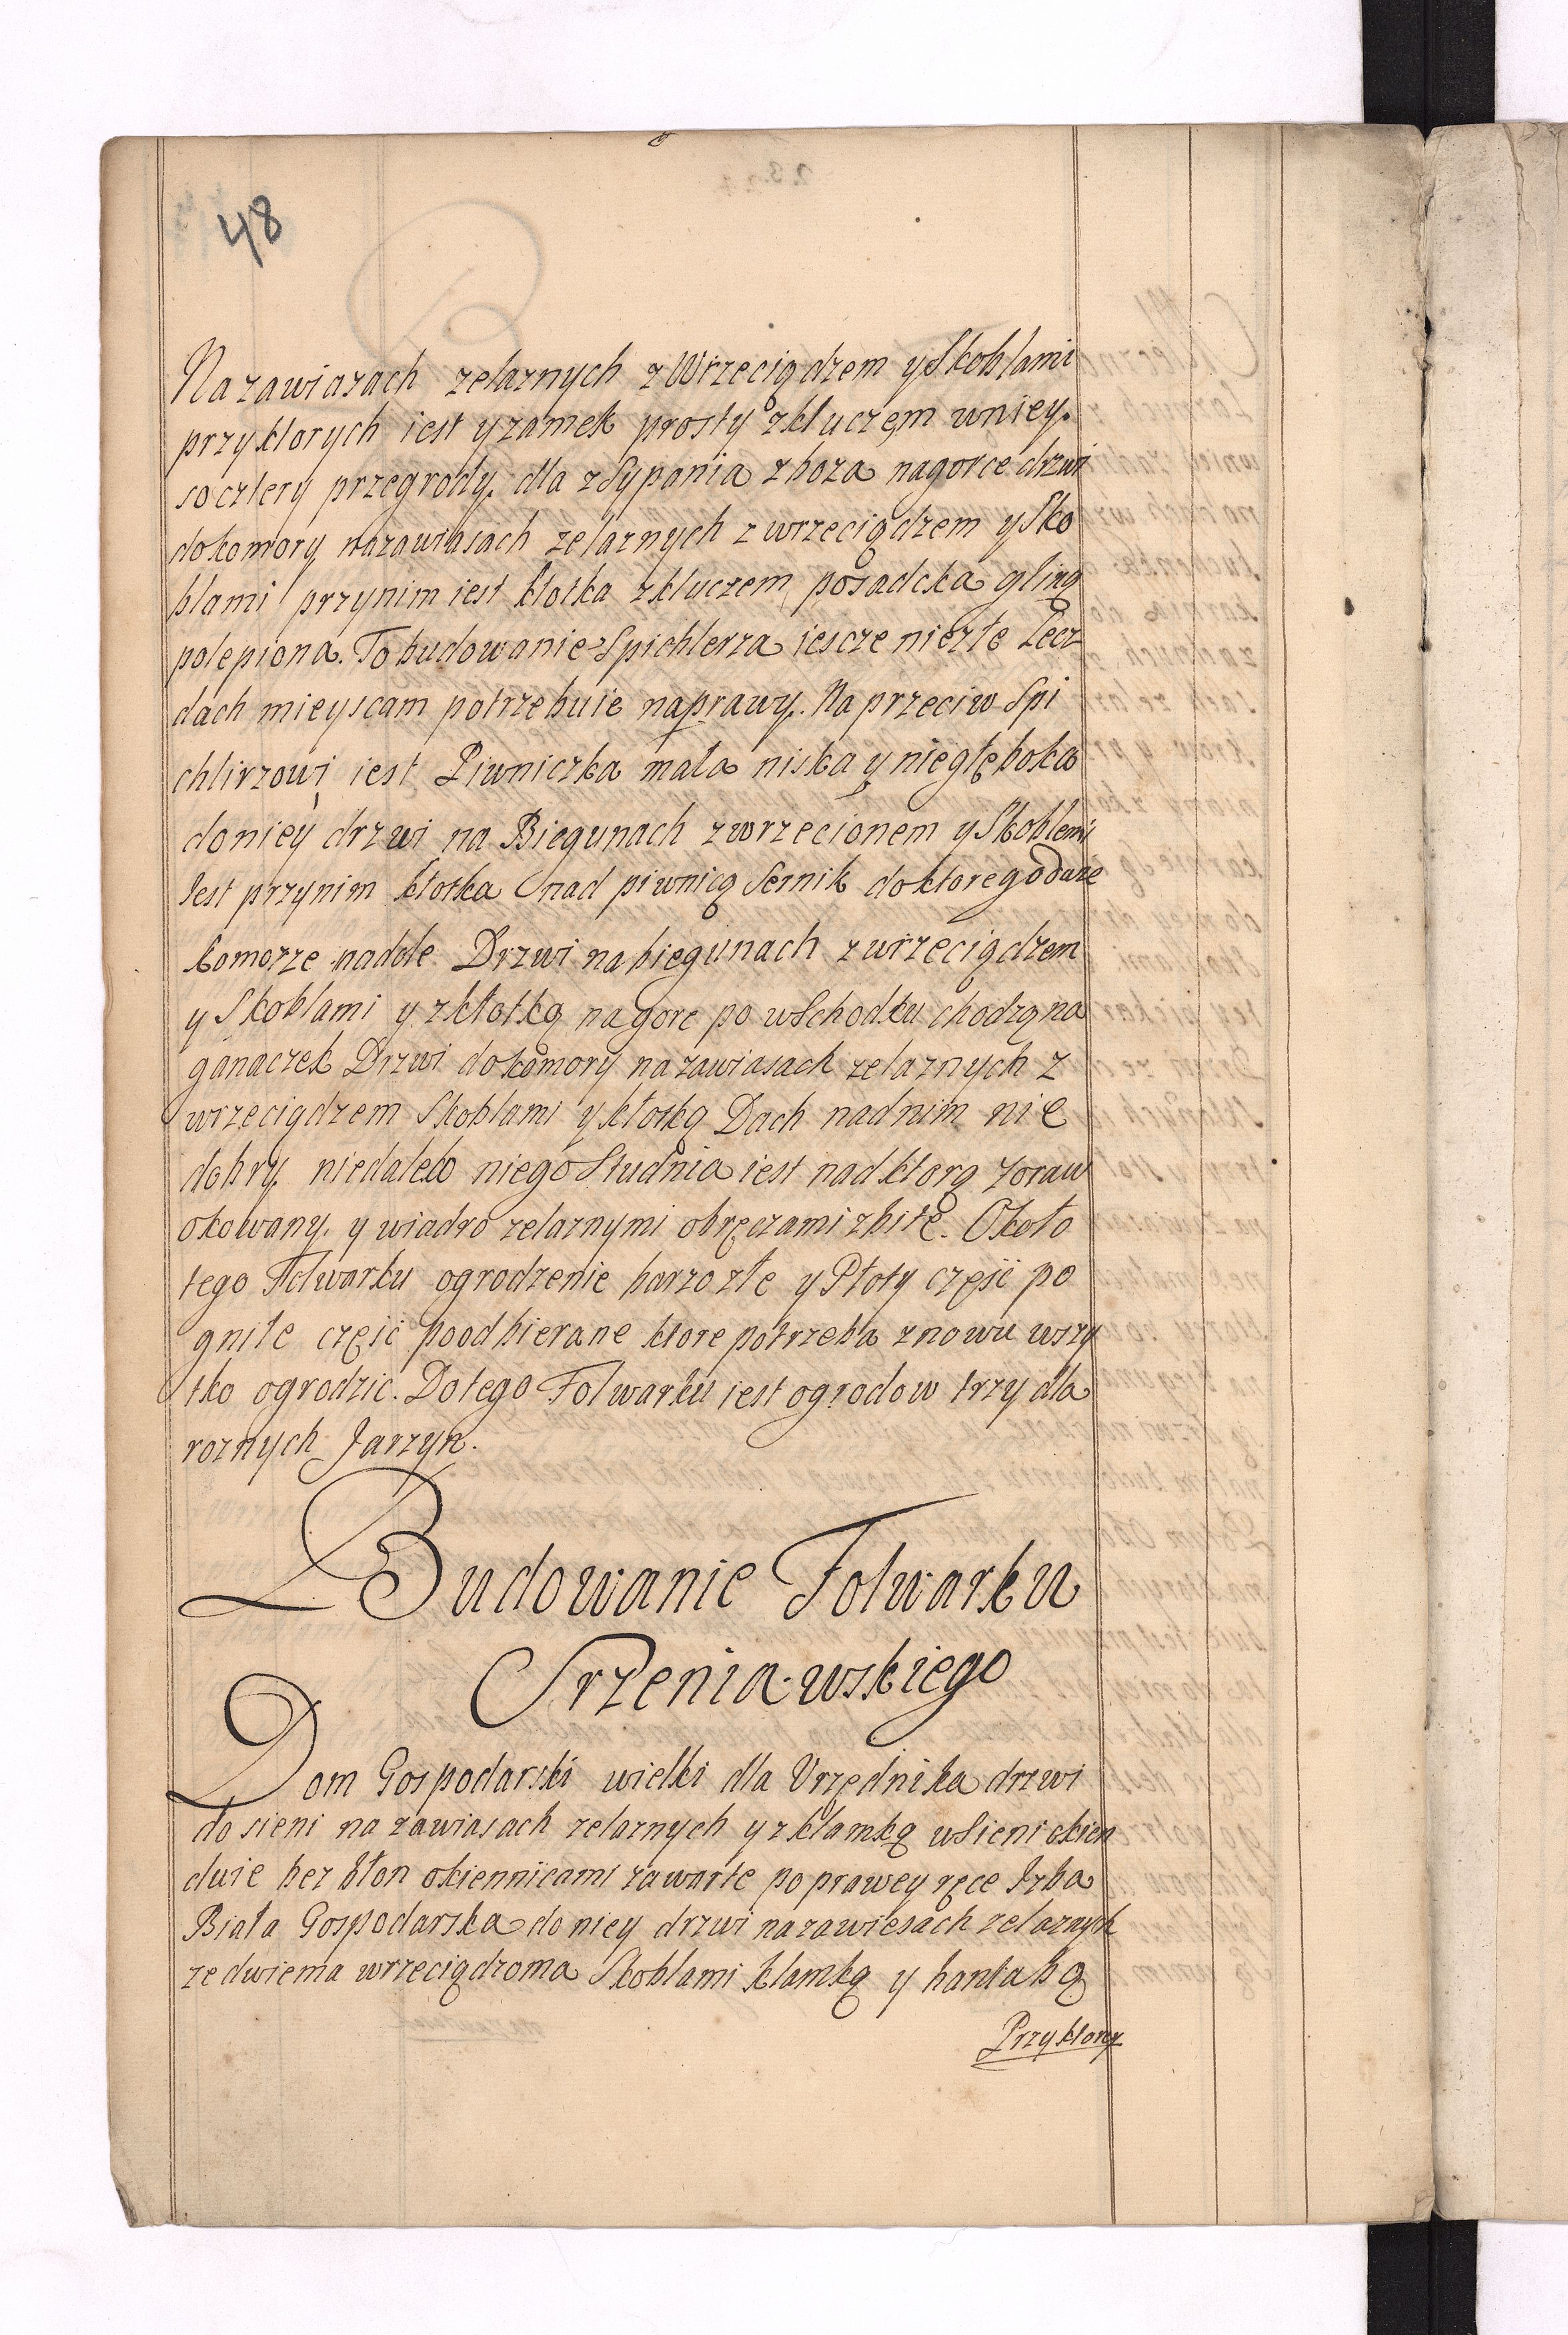 48
Na zawiasach zelaznych z Wrzeciądzem y Skoblami
przyktorych iest y zamek prosty zkluczem wniey.
so cztery przegrody. dla zSypania zboza nagorce drzwi
dokomory nazawiasach zelaznych z wrzeciądzem y Sko
blami przynim iest kłotka zkluczem posadcka gliną
polepiona. To budowanie Spichlerza iescze niezłe Lecz
dach mieyscam potrzebuie naprawy. Na przeciw Spi
chlirzowi iest Piwniczka mała niska y niegłęboka
doniey drzwi na Biegunach zwrzecionem y Skoblemi
Jest przynim kłotka nad piwnicą Sernik doktorego
komorze nadole Drzwi na biegunach zwrzeciądzem
y Skoblami y zkłotką na gore po wSchodku chodzą na
ganaczek Drzwi dokomory na zawiasach zelaznych z
wrzeciądzem Skoblami y kłotką Dach nadnim nie
dobry. niedaleko niego Studnia iest nad ktorą zoraw
okowany. y wiadro zelaznymi obręczami zbite. Około
tego Folwarku ogrodzenie barzo złe y Płoty część po
gniłe część poodbierane ktore potrzeba znowu wszy
tko ogrodzic. Dotego Folwarku iest ogrodow trzy dla
roznych Jarzyn.
Budowanie Folwarku
Srzeniawskiego
Dom Gospodarski wielki dla Vrzędnika drzwi
do sieni na zawiasach zelaznych y z klamką wSieni okien
dwie bez błon okiennicami zawarte po prawey ręce Izba
Biała Gospodarska do niey drzwi na zawiesach zelaznych
ze dwiema wrzeciądzoma Skoblami klamką y hantabą
Przyktorey